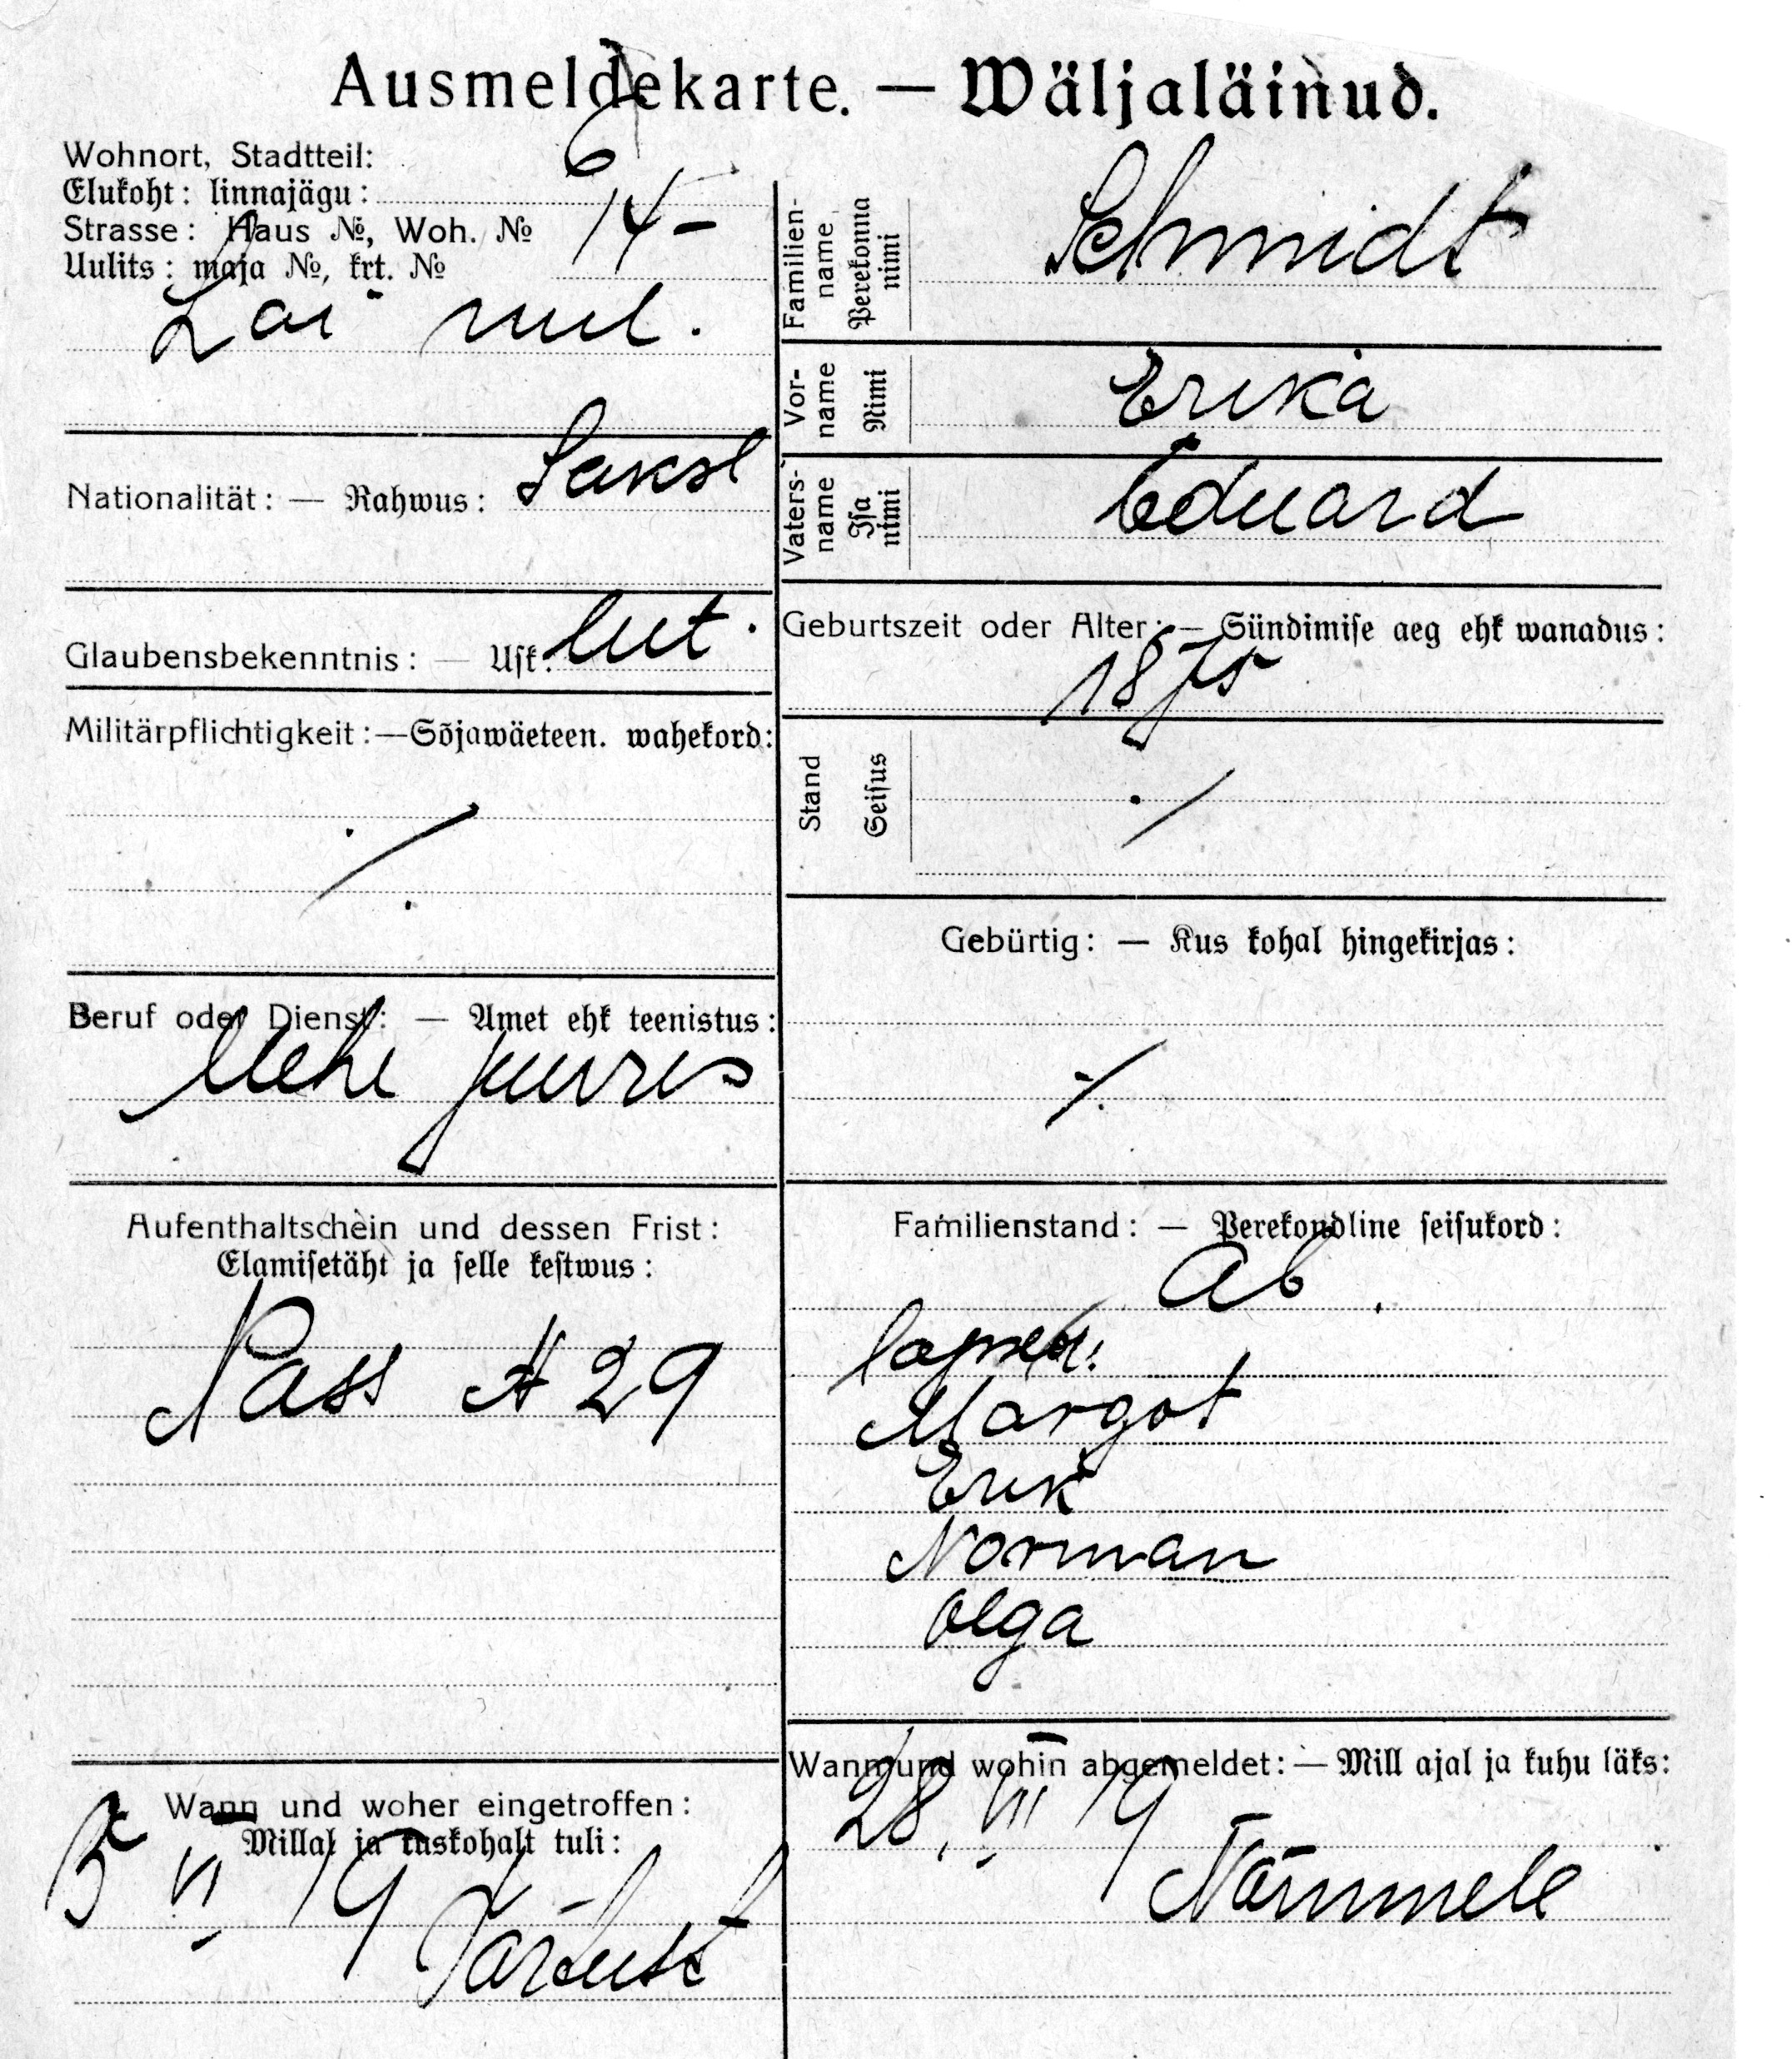 Ausmeldekarte. — Wäljaläinud.
Wohnort, Stadtteil:
Elukoht: linnajägu:
6
Strasse: Haus №, Woh. №
Uulits: maja №, krt. №
14 –
Lai uul.
Nationalität: — Rahwus: Saksl
Glaubensbekenntnis: — Usk: lut.
Militärpflichtigkeit: — Sõjawäeteen. wahekord:
Beruf oder Dienst: — Amet ehk teenistus:
Mehe juures
Aufenthaltschein und dessen Frist:
Elamisetäht ja selle kestwus:
Pass A 29
Wann und woher eingetroffen:
Millal ja kuskohalt tuli:
VI 19
Familien-name
Perekonna nimi
Schmidt
Vor-name
Nimi
Erika
Vaters-name
Isa nimi
Eduard
Geburtszeit oder Alter: — Sündimise aeg ehk wanadus:
Stand
Seisus
Gebürtig: — Kus kohal hingekirjas:
Familienstand: — Perekondline seisukord:
Ab.
lapsed:
Margot
Erik
Norman
Olga
Wann und wohin abgemeldet: — Mill ajal ja kuhu läks:
28. VII 19
Nõmmele